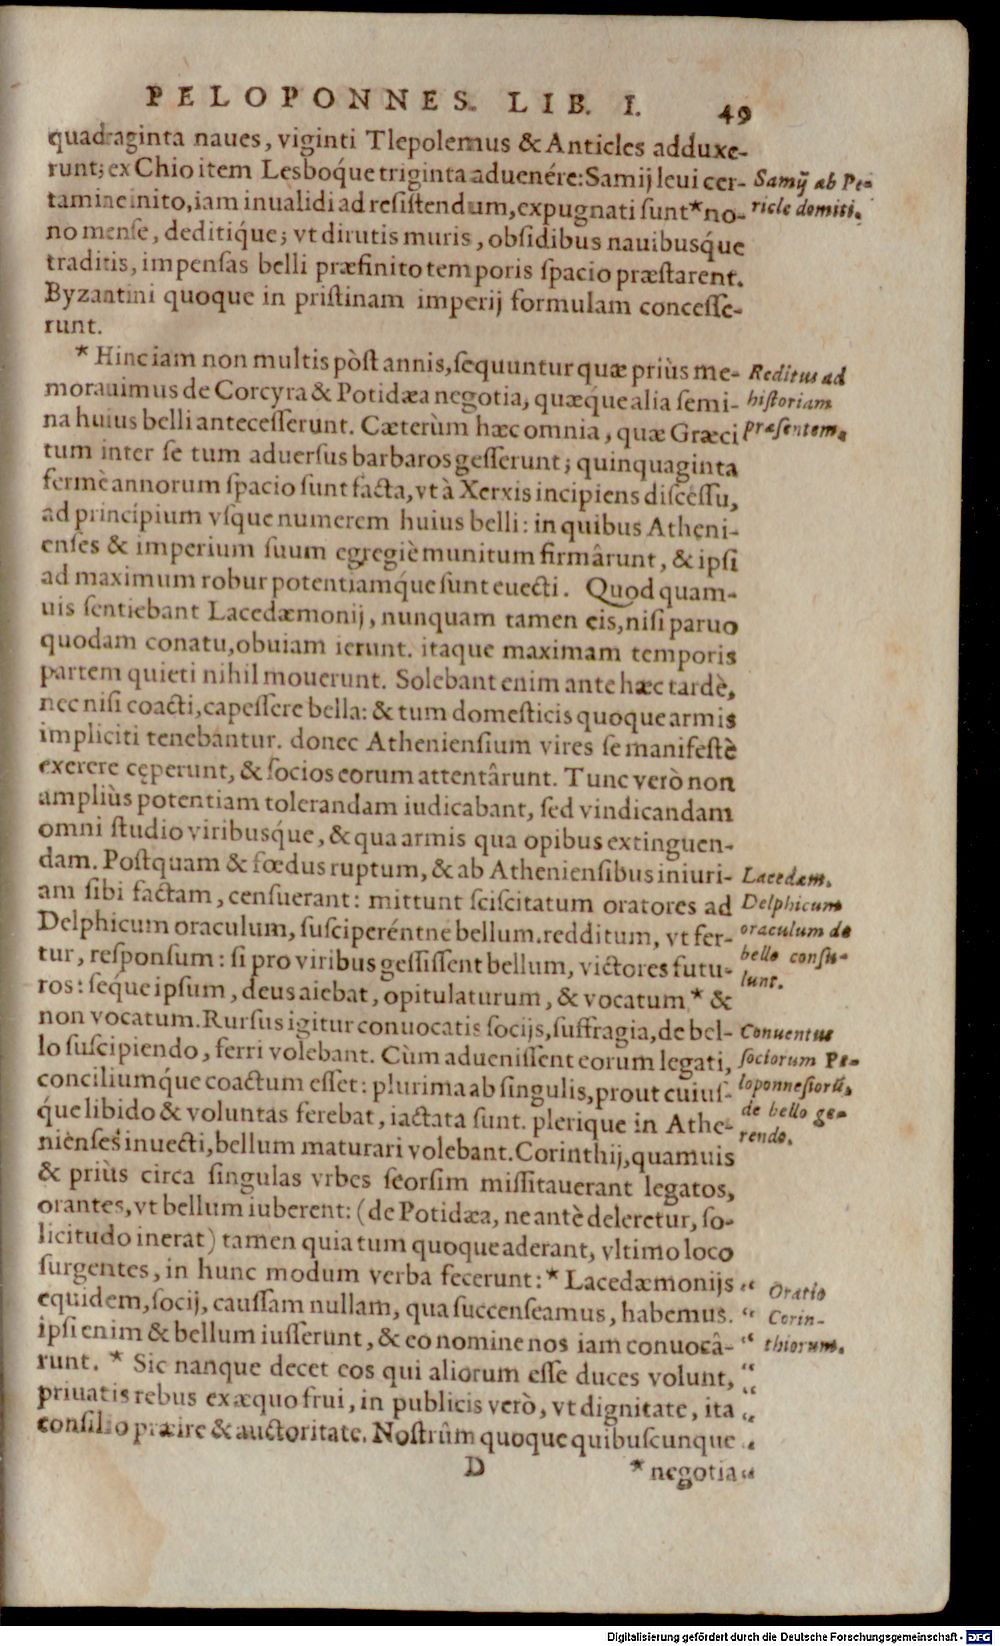 PELOPONNES. LIB. I. 49
quadraginta naues, viginti Tlepolemus & Anticles adduxe-
runt; ex Chio item Lesbóque triginta aduenére: Samij leui cer-
tamine inito, iam inualidi ad resistendum, expugnati sunt * no-
no mense, deditíque; vt dirutis muris, obsidibus nauibusq́ue
traditis, impensas belli præfinito temporis spacio præstarent.
Byzantini quoque in pristinam imperij formulam concesse-
runt.
Samij ab Pe-
ricle domiti.
* Hinc iam non multis pòst annis, sequuntur quæ priùs me-
morauimus de Corcyra & Potidæa negotia, quæque alia semi-
na huius belli antecesserunt. Cæterùm hæc omnia, quæ Græci
tum inter se tum aduersus barbaros gesserunt; quinquaginta
fermè annorum spacio sunt facta, vt à Xerxis incipiens discessu,
ad principium vsque numerem huius belli: in quibus Atheni-
enses & imperium suum egregiè munitum firmârunt, & ipsi
ad maximum robur potentiamq́ue sunt euecti. Quod quam-
uis sentiebant Lacedæmonij, nunquam tamen eis, nisi paruo
quodam conatu, obuiam ierunt. itaque maximam temporis
partem quieti nihil mouerunt. Solebant enim ante hæc tardè,
nec nisi coacti, capessere bella: & tum domesticis quoque armis
impliciti tenebantur. donec Atheniensium vires se manifestè
exerere cęperunt, & socios eorum attentârunt. Tunc verò non
ampliùs potentiam tolerandam iudicabant, sed vindicandam
omni studio viribusq́ue, & qua armis qua opibus extinguen-
dam. Postquam & fœdus ruptum, & ab Atheniensibus iniuri-
am sibi factam, censuerant: mittunt sciscitatum oratores ad
Delphicum oraculum, susciperéntne bellum. redditum, vt fer-
tur, responsum: si pro viribus gessissent bellum, victores futu-
ros: seque ipsum, deus aiebat, opitulaturum, & vocatum * &
non vocatum. Rursus igitur conuocatis socijs, suffragia, de bel-
lo suscipiendo, ferri volebant. Cùm aduenissent eorum legati,
conciliumq́ue coactum esset: plurima ab singulis, prout cuius-
q́ue libido & voluntas ferebat, iactata sunt. plerique in Athe-
nienses inuecti, bellum maturari volebant. Corinthij, quamuis
& priùs circa singulas vrbes seorsim missitauerant legatos,
orantes, vt bellum iuberent: (de Potidæa, ne antè deleretur, so-
licitudo inerat) tamen quia tum quoque aderant, vltimo loco
surgentes, in hunc modum verba fecerunt: * Lacedæmonijs “
equidem, socij, caussam nullam, qua succenseamus, habemus. “
ipsi enim & bellum iusserunt, & eo nomine nos iam conuocâ- “
runt. * Sic nanque decet eos qui aliorum esse duces volunt, “
priuatis rebus ex æquo frui, in publicis verò, vt dignitate, ita “
consilio præire & auctoritate. Nostrûm quoque quibuscunque “
D * negotia “
Reditus ad
historiam
præsentem.
Lacedæm.
Delphicum
oraculum de
bello consu-
lunt.
Conuentus
sociorum Pe-
loponnesiorũ,
de bello ge-
rendo.
Oratio
Corin-
thiorum.
Digitalisierung gefördert durch die Deutsche Forschungsgemeinschaft - DFG